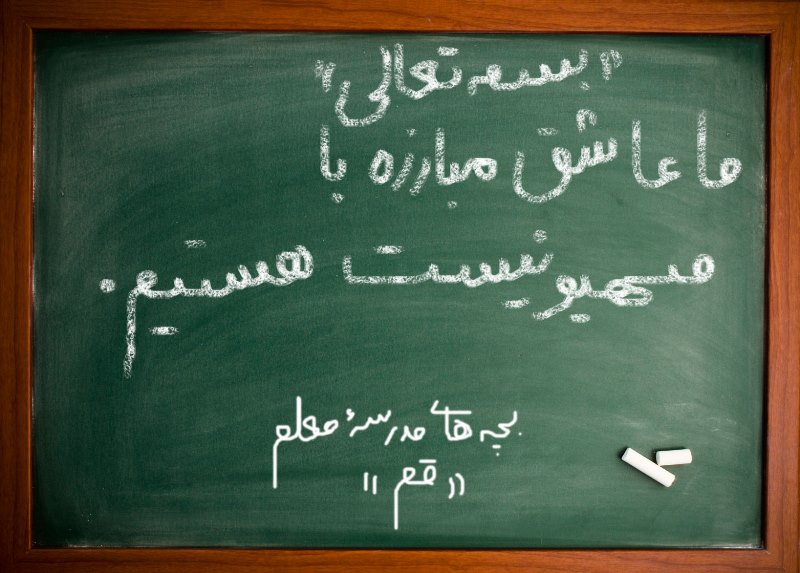 "بسمه تعالی"
ما عاشق مبارزه با
صهیونیست هستیم.
بچه های مدرسهٔ معلم
"قم"